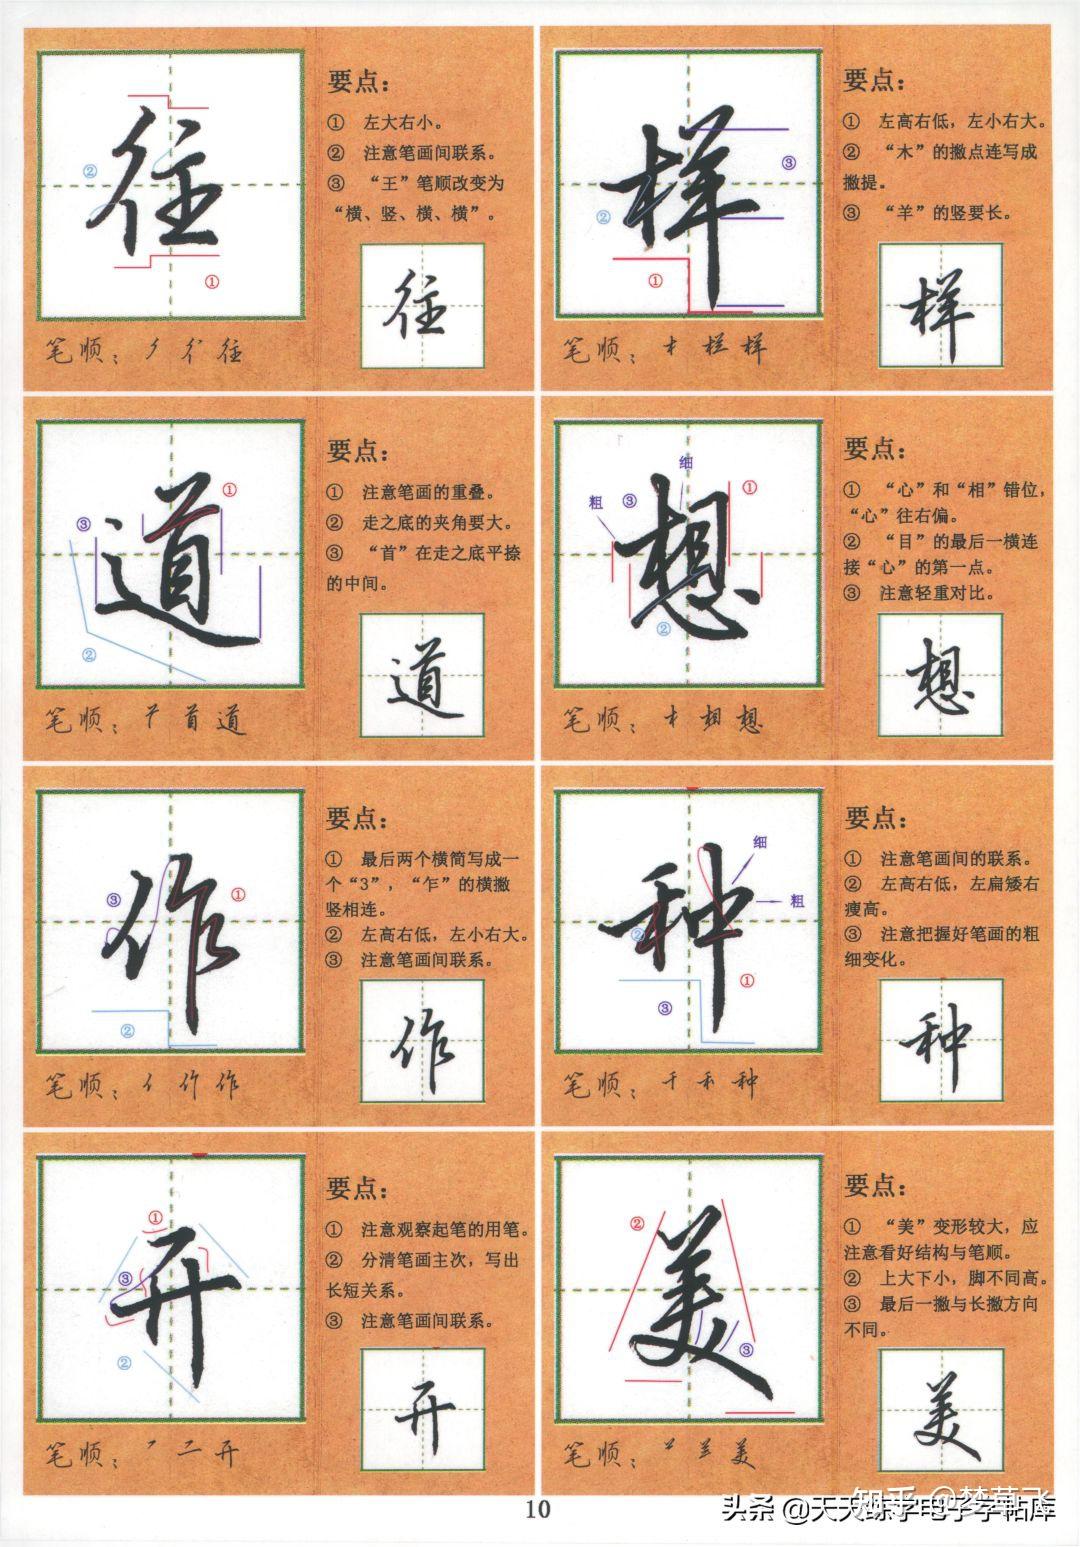 往
要点：
① 左大右小。
② 注意笔画间联系。
③ “王”笔顺改变为
“横、竖、横、横”。
②
①
往
笔顺：丿 彳 往
样
要点：
① 左高右低，左小右大。
② “木”的撇点连写成
撇提。
③ “羊”的竖要长。
③
②
①
样
笔顺：样
道
要点：
① 注意笔画的重叠。
② 走之底的夹角要大。
③ “首”在走之底平捺
的中间。
①
③
②
道
笔顺：首 道
想
要点：
① “心”和“相”错位，
“心”往右偏。
② “目”的最后一横连
接“心”的第一点。
③ 注意轻重对比。
细
粗
③
①
②
想
笔顺：相 想
作
要点：
① 最后两个横简写成一
个“3”，“乍”的横撇
竖相连。
② 左高右低，左小右大。
③ 注意笔画间联系。
③
①
②
作
笔顺：亻 作 作
种
要点：
① 注意笔画间的联系。
② 左高右低，左扁矮右
瘦高。
③ 注意把握好笔画的粗
细变化。
细
粗
②
①
③
种
笔顺：千 禾 种
开
要点：
① 注意观察起笔的用笔。
② 分清笔画主次，写出
长短关系。
③ 注意笔画间联系。
①
③
②
开
笔顺：一 二 开
美
要点：
① “美”变形较大，应
注意看好结构与笔顺。
② 上大下小，脚不同高。
③ 最后一撇与长撇方向
不同。
②
③
美
笔顺：美
10
知乎 @梦草飞
头条 @天天练字电子字帖库